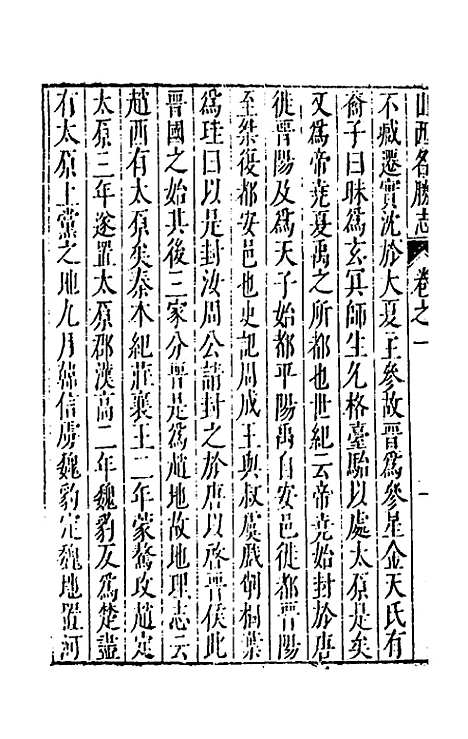 山西名勝志 卷之一 一
不臧遷實沈於大夏主參故晉為參星金天氏有
裔子曰昧為玄冥師生允格臺駘以處太原是矣
又為帝堯夏禹之所都也世紀云帝堯始封於唐
徙晉陽及為天子始都平陽禹自安邑徙都晉陽
至桀復都安邑也史記周成王與叔虞戲削桐葉
為珪曰以是封汝周公請封之於唐以啓晉侯此
晉國之始其後三家分晉是為趙地故地理志云
趙西有太原矣秦本紀莊襄王二年蒙驁攻趙定
太原三年遂置太原郡漢高二年魏豹反為楚盡
有太原上黨之地九月韓信虜魏豹定魏地置河